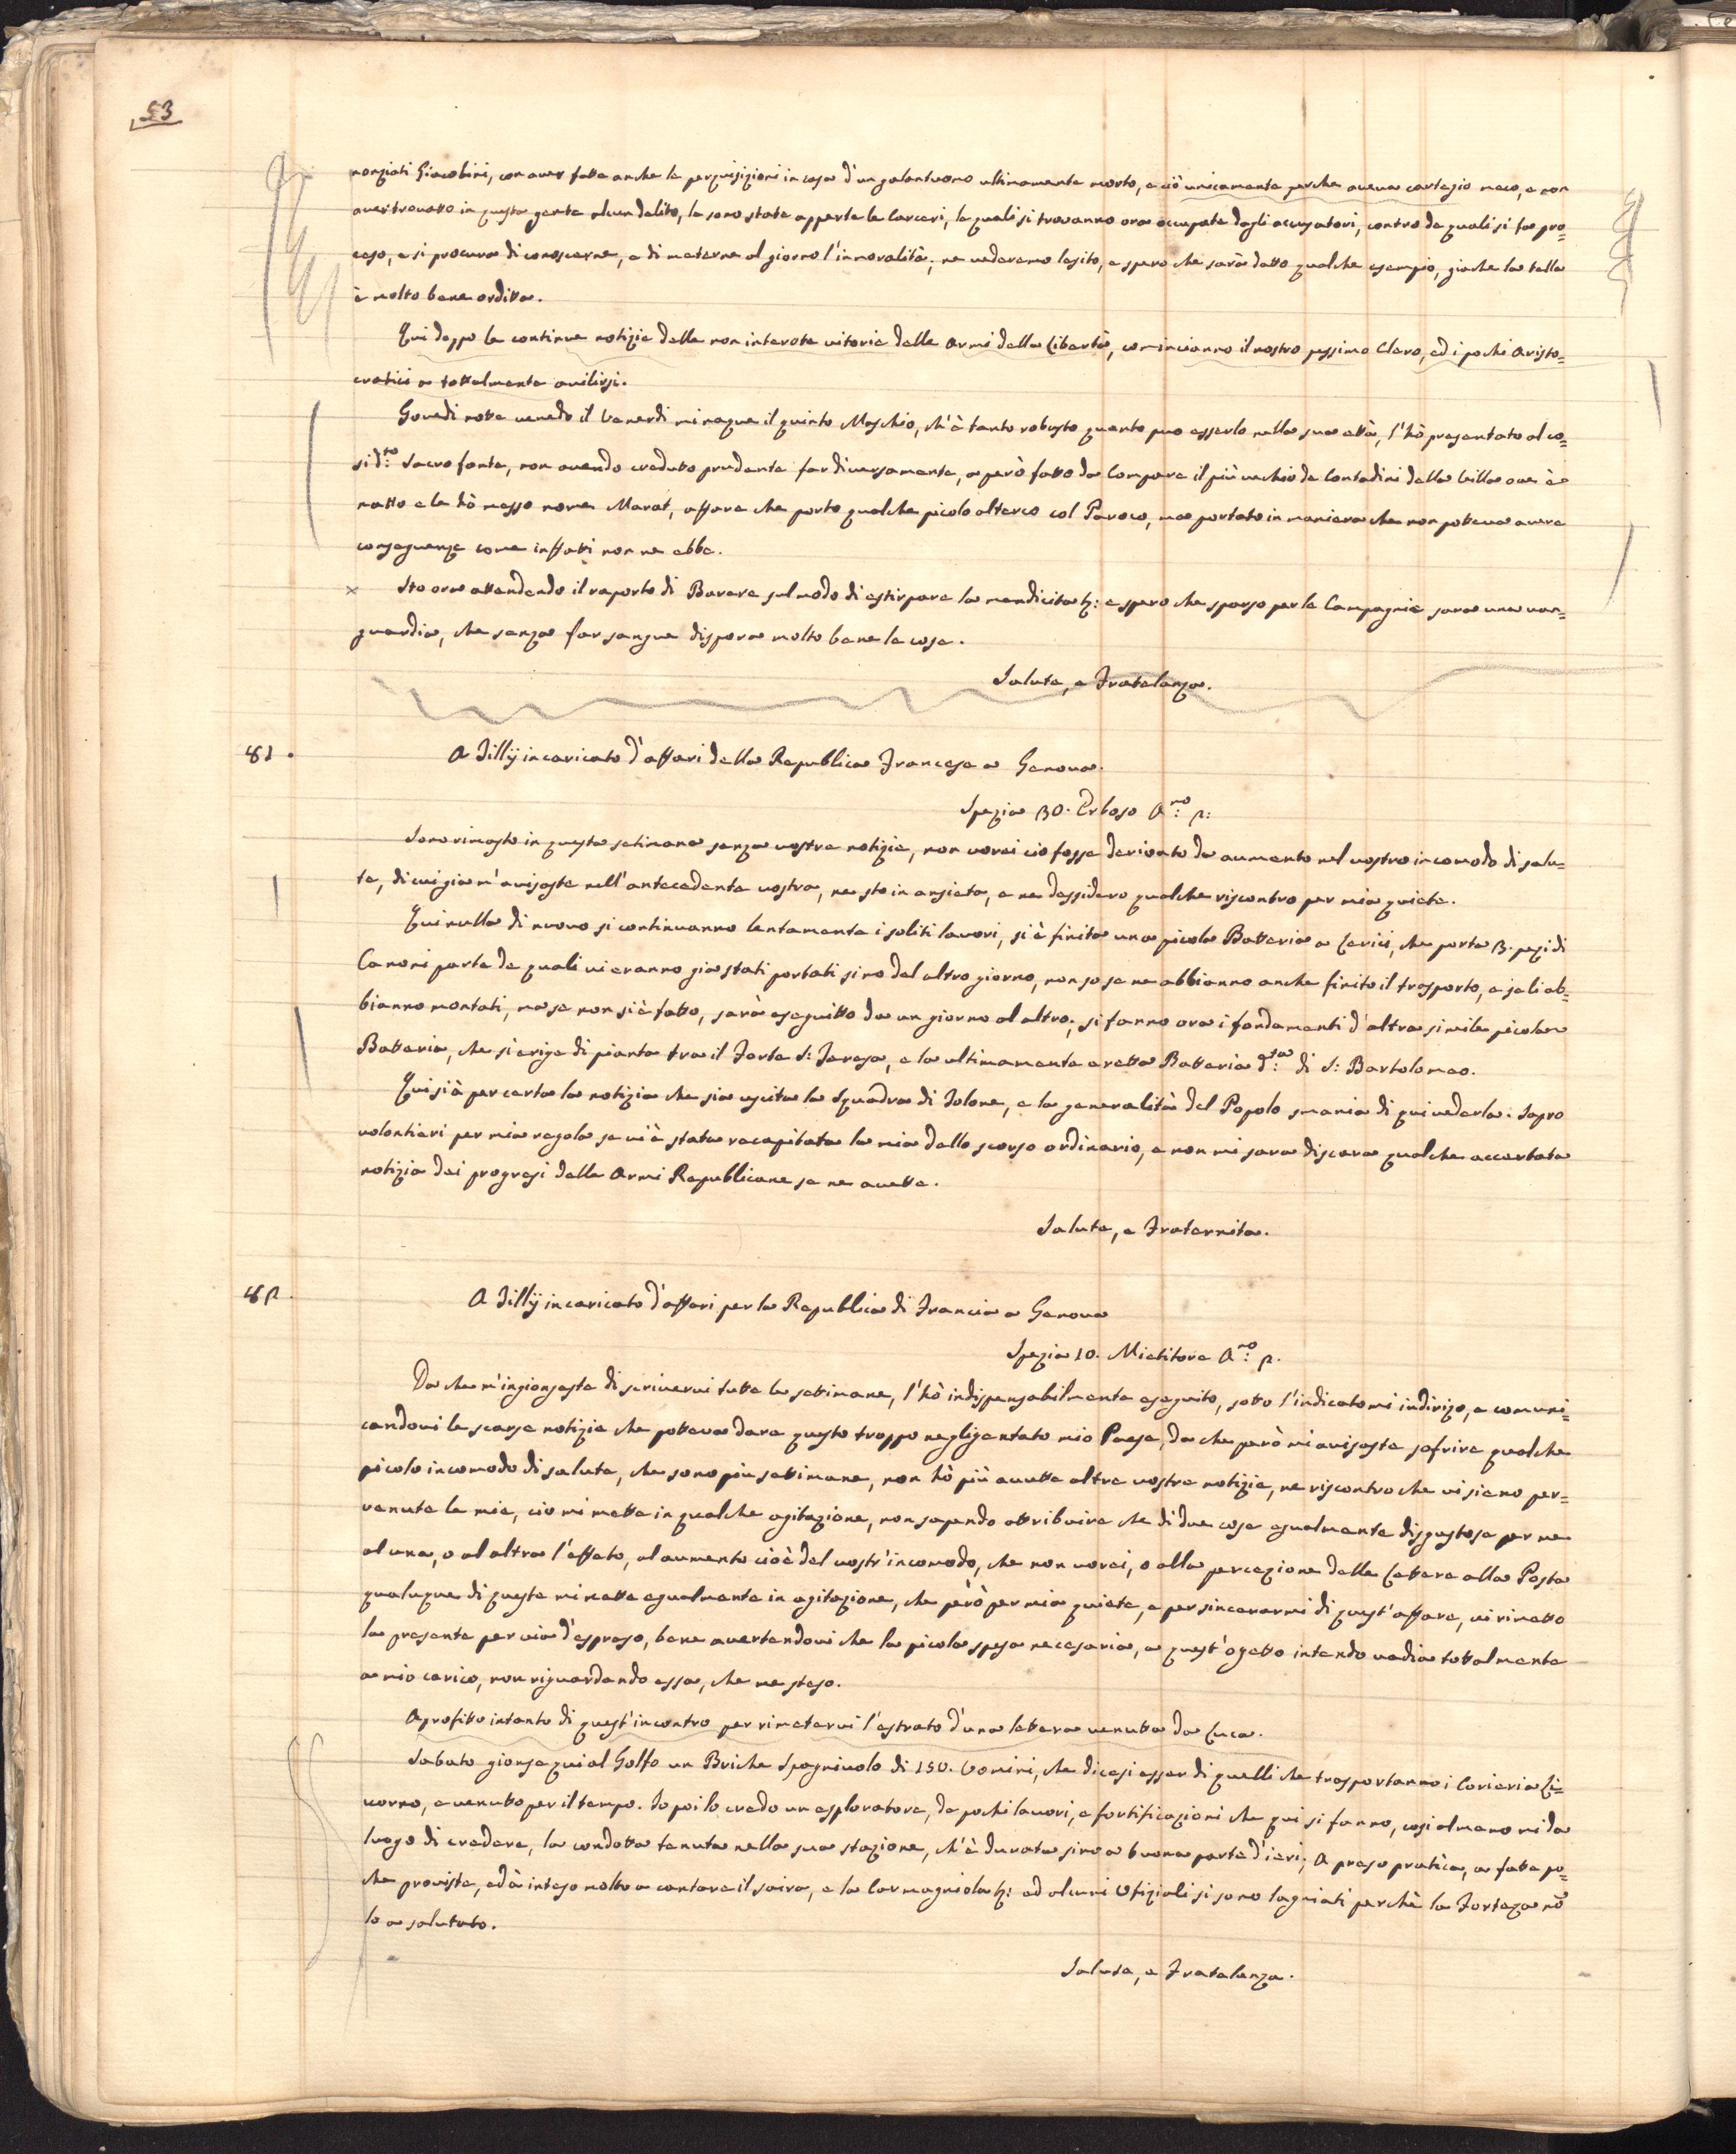 53
nonziati Giacobini, con aver fatte anche le perquisizioni in casa d'un galantuomo ultimamente morto, e ciò unicamente perche aveva cartegio meco, e non
aver trovatto in questa gente alcun delito, le sono state apperte le Carceri, le quali si trovanno ora occupate dagli accusatori, contro de quali si fa pro=
ceso, e si procura di conoscerne, e di meterne al giorno l'inmoralità; ne vederemo lesito, e spero che sarà datto qualche esempio, giache la tella
è molto bene orditta.
Qui doppo le continue notizie delle non interote vitorie delle Armi della Libertà, comincianno il nostro pessimo Clero, ed i pochi Aristo=
cratici a tottalmente avilirsi.
Giovedi notte venedo il Venerdi mi naque il quinto Maschio, ch'è tanto robusto quanto puo esserlo nella sua ettà, l'hò presentato al co=
si d:to Sacro fonte, non avendo creduto prudente far diversamente, a però fatto da Compare il più vechio de Contadini della Villa ove è
natto e le hò messo nome Marat, affare che porto qualche picolo alterco col Paroco, ma portato in maniera che non potteva avere
conseguenze come inffatti non ne ebbe.
× Sto ora attendendo il raporto di Barere sul modo di estirpare la mendicita &: e spero che sparso per le Campagnie sara una van=
guardia, che senza far sangue dispora molto bene le cose.
Salute, e Fratelanza.
81.
A Tillÿ incaricato d'affari della Republica Francese a Genova.
Spezia 30. Erboso A:no 2:
Sono rimasto in questa setimana senza vostre notizie, non vorei cio fosse derivato da aumento nel vostro incomodo di salu=
te, di cui gia m'avisaste nell'antecedente vostra, ne sto in ansieta, e ne dessidero qualche riscontro per mia quiete.
Qui nulla di nuovo si continuanno lentamente i soliti lavori, si è finita una picola Batteria a Lerici, che porta 3. pezi di
Canoni parte de quali vi eranno gia stati portati sino dal altro giorno, non so se ne abbianno anche finito il trasporto, e se li ab=
bianno montati, ma se non si è fatto, sarà eseguitto da un giorno al altro; si fanno ora i fondamenti d'altra simile picola
Batteria, che si erige di pianta tra il Forte S: Teresa, e la ultimamente eretta Batteria d:ta di S: Bartolomeo.
Qui si à per certa la notizia che sia uscita la Squadra di Tolone, e la generalità del Popolo smania di qui vederla. Sapro
volontieri per mia regola se vi è stata recapitata la mia dello scorso ordinario, e non mi sara discara qualche accertata
notizia dei progresi delle Armi Republicane se ne avette.
Salute, e Fraternita.
82.
A Tillÿ incaricato d'affari per la Republica di Francia a Genova
Spezia 10. Mietitore A:no 2.
Da che m'ingionseste di scrivervi tutte le settimane, l'hò indispensabilmente eseguito, sotto l'indicatomi indirizo, e comuni=
candovi le scarse notizie che potteva dare questo troppo negligentato mio Paese, da che però mi avisaste sofrire qualche
picolo incomodo di salute, che sono più settimane, non hò più avutte altre vostre notizie, ne riscontro che vi sieno per=
venute le mie, cio mi mette in qualche agitazione, non sapendo attribuire che di due cose egualmente disgustose per me
al una, o al altra l'effeto, al aumento cioè del vostr'incomodo, che non vorei, o alla percezione delle Lettere alla Posta
qualuque di queste mi mette egualmente in agitazione, che però per mia quiete, e per sincerarmi di quest'affare, vi rimetto
la presente per via d'espreso, bene avertendovi che la picola spesa necesaria, a quest'ogetto intendo vadia tottalmente
a mio carico, non riguardando essa, che me steso.
Aprofitto intanto di quest'incontro per rimetervi l'estrato d'una lettera venutta da Luca.
Sabato gionse qui al Golfo un Briche Spagniuolo di 150. Uomini, che dicesi esser di quelli che trasportanno i Corieri a Li=
vorno, e venutto per il tempo. Io poi lo credo un esploratore, de pochi lavori, e fortificazioni che qui si fanno, cosi almeno mi da
luogo di credere, la condotta tenuta nella sua stazione, ch'è durata sino a buona parte d'ieri; A preso pratica, a fatte po=
che proviste, ed à inteso molto a cantare il saira, e la Carmagniola &: ed alcuni Ofiziali si sono lagniati perchè la Forteza nō
lo a salutato.
Salute, e Fratelanza.